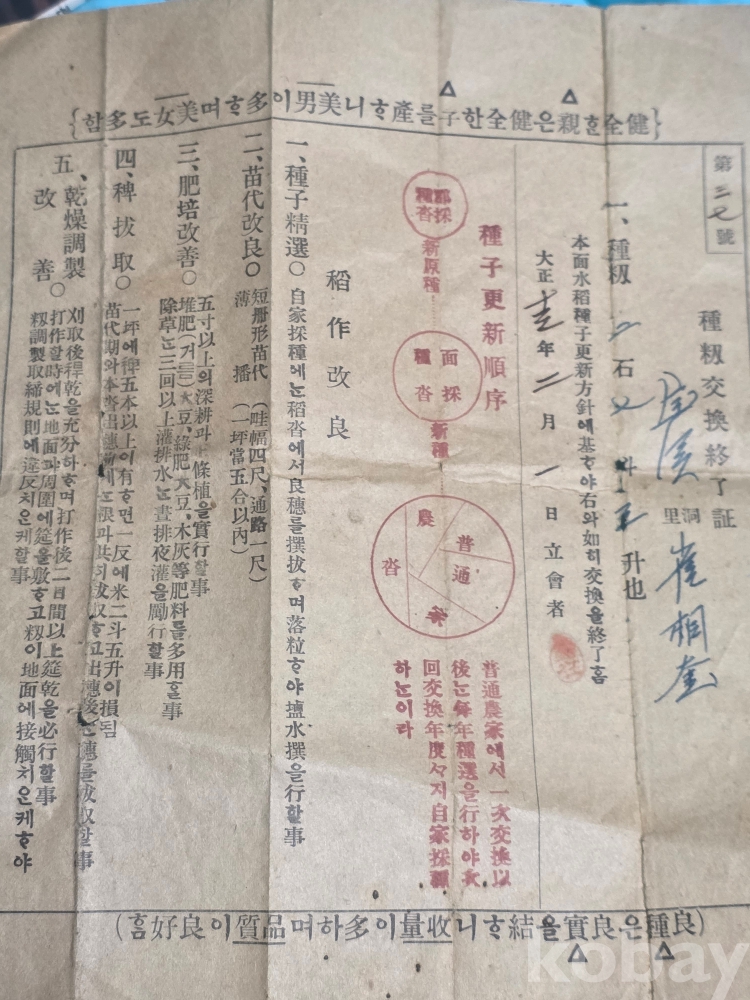 {健全ᄒᆞᆫ親은健全한子를產ᄒᆞ니美男이多ᄒᆞ며美女도多함}
第三七號
種籾交換終了証
里洞
崔相奎
一、種籾 石 斗 升也
本面水稻種子更新方針에基ᄒᆞ야右와如히交換을終了홈
大正 年二月一日 立會者
種子更新順序
郡採種沓
新原種
面採種沓
新種
普通農家沓
普通農家에서一次交換以
後ᄂᆞᆫ每年種選을行하야次
回交換年度ᄭᆞ지自家採種
하ᄂᆞᆫ이라
稻作改良
一、種子精選○ 自家採種에ᄂᆞᆫ稻沓에서良穗를撰拔ᄒᆞ며落粒ᄒᆞ야塩水撰을行할事
二、苗代改良○ 短册形苗代(畦幅四尺、通路一尺)
薄播(一坪當五合以內)
三、肥培改善○ 五寸以上의深耕과 條植을實行할事
堆肥(거름)大豆、綠肥大豆、木灰等肥料를多用ᄒᆞᆯ事
除草ᄂᆞᆫ三回以上灌排水ᄂᆞᆫ晝排夜灌을勵行할事
四、稗拔取○ 一坪에稗五本以上이有ᄒᆞ면一反에米二斗五升이損됨
苗代期와本沓出穗前에ᄂᆞᆫ根과共히拔取ᄒᆞ고出穗後ᄂᆞᆫ穗를拔取할事
五、乾燥調製改善○ 刈取後稈乾을充分하ᄒᆞ며打作後二日間以上筵乾을必行할事
打作할時에ᄂᆞᆫ地面과周圍에筵을敷하고籾이地面에接觸치안케ᄒᆞ야
籾調製取締規則에違反치안케할事
(良種은良實을結ᄒᆞ니收量이多하며品質이良好홈)
kobay